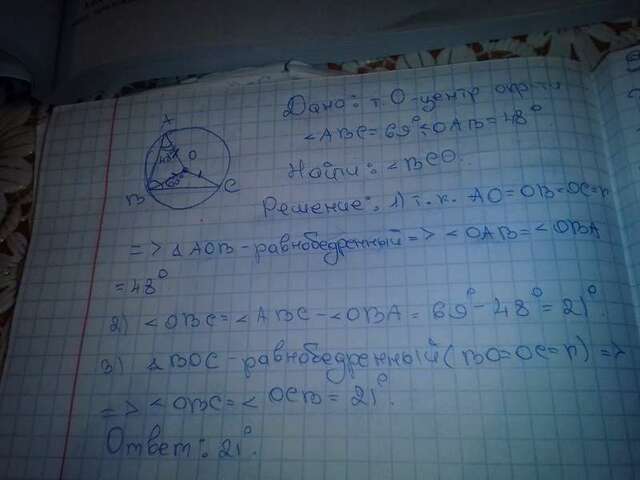 Дано: т. О-центр окр-ти
∠ABC=69°; ∠OAB=48°.
Найти: ∠BCO.
A
48°
O
69°
B
C
Решение: 1) т.к. AO=OB=OC=r
=> △AOB-равнобедренный=> ∠OAB=∠OBA
=48°
2) ∠OBC=∠ABC-∠OBA=69°-48°=21°.
3) △BOC-равнобедренный(BO=OC=r) =>
=> ∠OBC=∠OCB=21°.
Ответ: 21°.